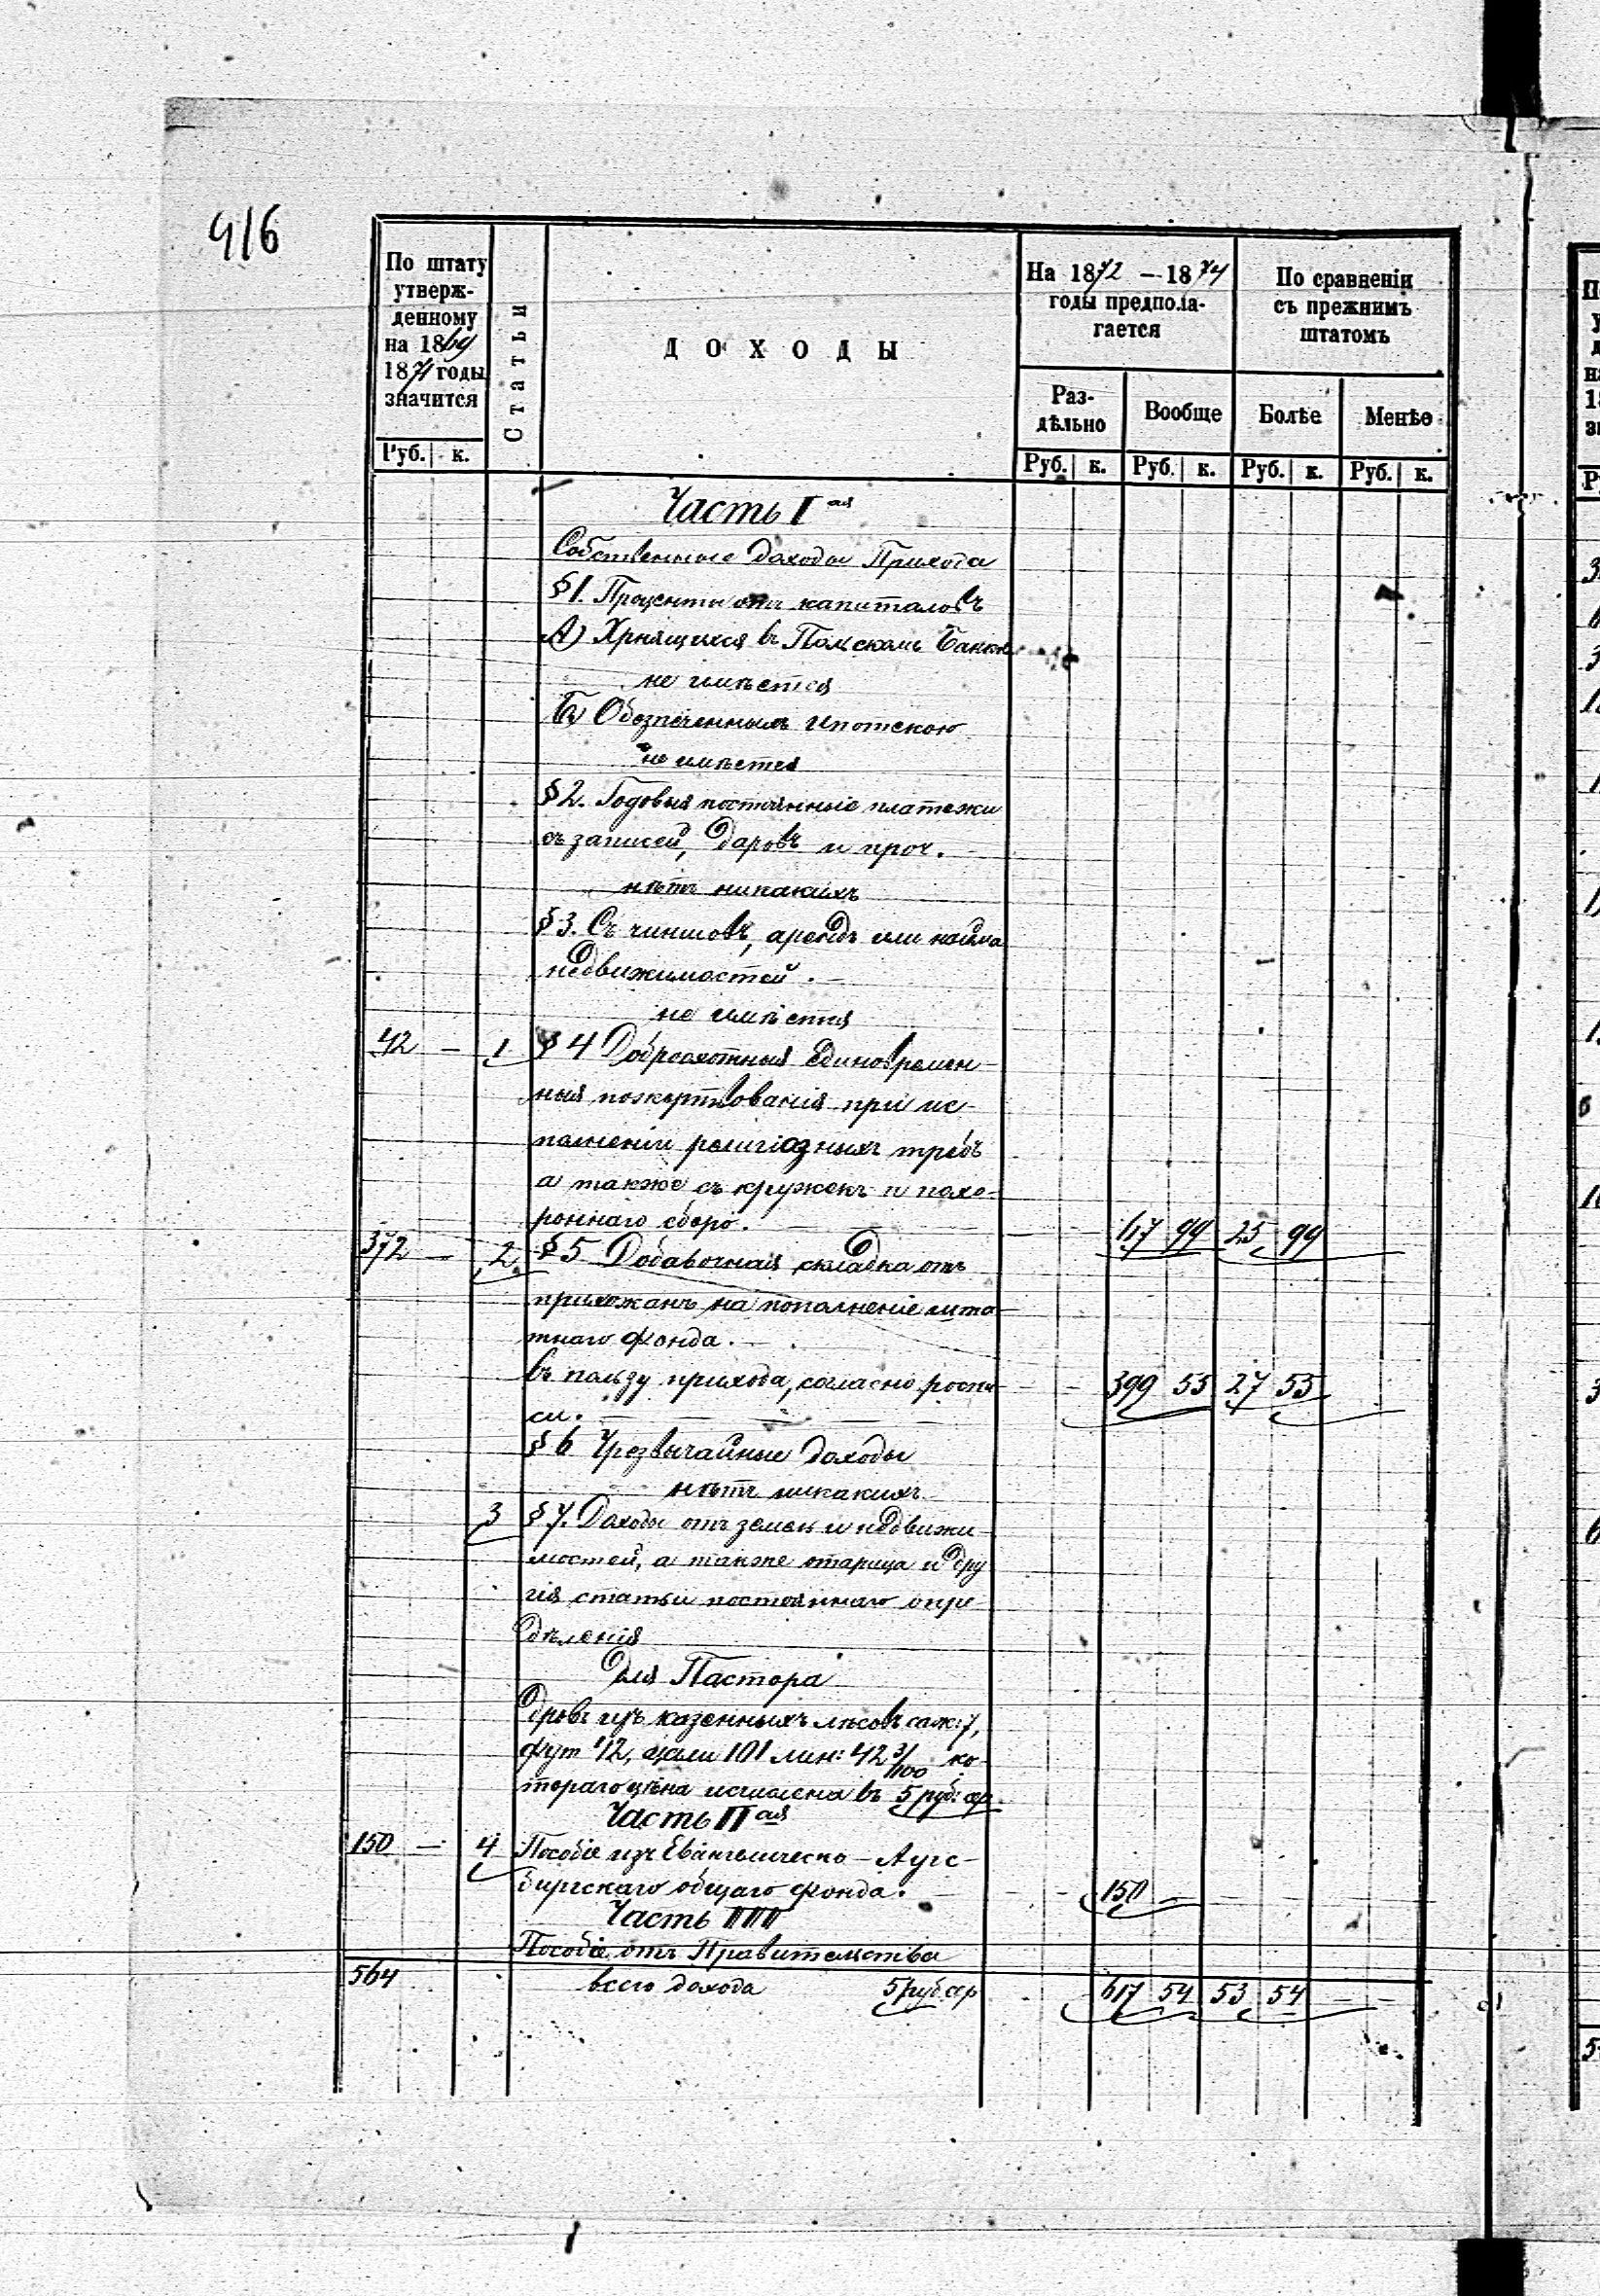 416
По штату
утверж-
денному
на 1869
1871 годы
значится
Руб. к.
Статьи
ДОХОДЫ
На 1872 — 1874
годы предпола-
гается
Раз-
дѣльно
Вообще
Руб. к. Руб. к.
По сравненіи
съ прежнимъ
штатомъ
Болѣе
Менѣе
Руб. к. Руб. к.
Часть I ая
Собственные доходы Прихода
§ 1. Проценты отъ капиталовъ
А) Хрнящихся въ Польскомъ Банкѣ
не имѣется
Б) Обезпеченныхъ ипотекою
не имѣется
§ 2. Годовыя постоянныіе платежи
съ записей, даровъ и проч.
нѣтъ никакихъ
§ 3. Съ чиншовъ, арендъ или найма
недвижимостей.
не имѣется
42 — 1 § 4 Доброохотныя единовремен-
ныя пожертвованія при ис-
полненіи религіозныхъ требъ
а также съ кружекъ и похо-
роннаго сбора. 67 99 25 99
372 — 2. § 5 Добавочная складка отъ
прихожанъ на пополненіе шта-
тнаго фонда. —
въ пользу прихода, согласно роспи- 399 55 27 55
си.
§ 6 Чрезвычайные доходы
нѣтъ никакихъ
3 § 7. Доходы отъ земель и недвижи-
мостей, а также отарица и дру
гія статьи постояннаго опре-
дѣленія
для Пастора
Дровъ изъ казенныхъ лѣсовъ саж: 7,
фут 12, цали 101 лин: 42 3/100 ко-
тораго цѣна исчислена въ 5 руб: ср.
Часть II ая
150 — 4 Пособіе изъ Евангелическо-Аугс-
бургскаго общаго фонда. 150 —
Часть III
Пособіе отъ Правительства
564 всего дохода 5 руб ср 617 54 53 54